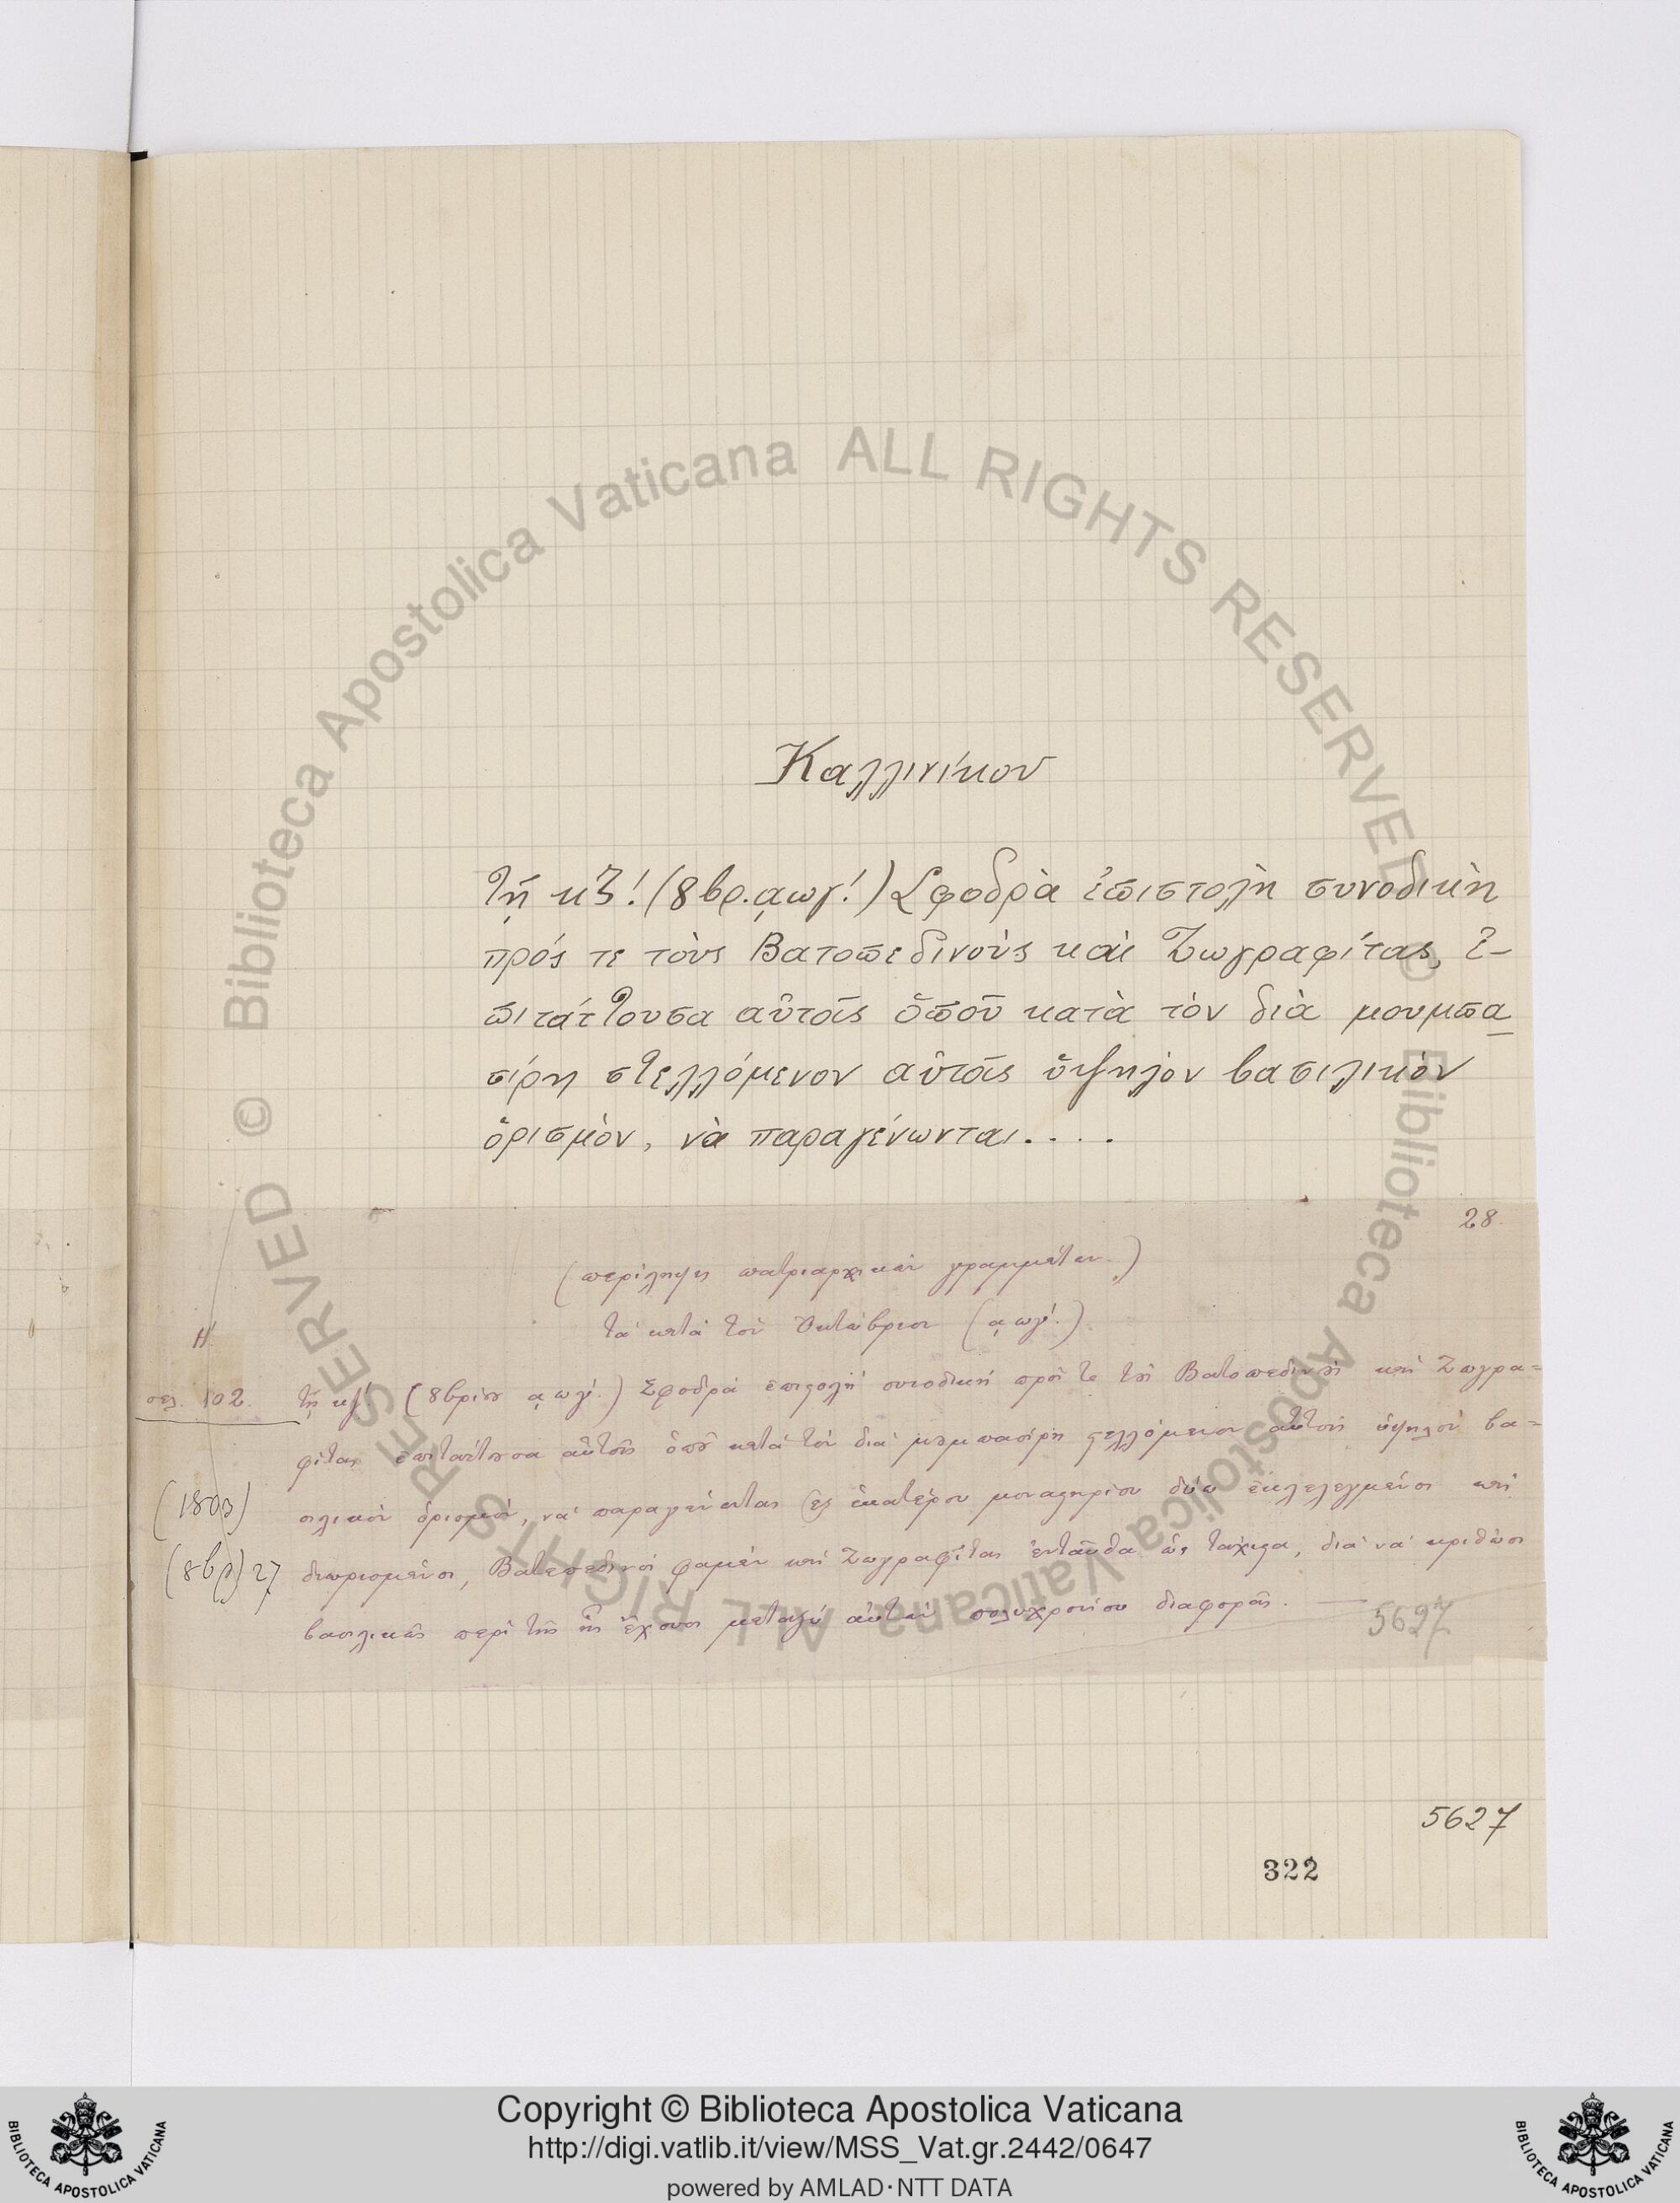 Καλλινίκου
Τῇ κζ! (8βρ. ͵αωγ!) Σφοδρὰ ἐπιστολὴ συνοδικὴ
πρός τε τοὺς Βατοπεδινοὺς καὶ Ζωγραφίτας, ἐ-
πιτάττουσα αὐτοῖς ὁποῦ κατὰ τὸν διὰ μουμπα
σίρη στελλόμενον αὐτοῖς ὑψηλὸν βασιλικὸν
ὁρισμὸν, νὰ παραγένωνται....
28.
(περίληψις πατριαρχικῶν γραμμάτων.)
τὰ κατὰ τὸν Ὀκτώβριον (͵αωγ!.)
Η!
σελ. 102. τῇ κζ! (8βρίου ͵αωγ!.) Σφοδρὰ ἐπιστολὴ συνοδικὴ πρός τε τοὺς Βατοπεδινοὺς καὶ Ζωγρα=
φίτας ἐπιτάττουσα αὐτοῖς ὁποῦ κατὰ τὸν διὰ μουμπασίρη στελλόμενον αὐτοῖς ὑψηλὸν βα=
(1803) σιλικὸν ὁρισμὸν, νὰ παραγένωνται ἐξ ἑκατέρου μοναστηρίου δύω ἐκλελεγμένοι καὶ
(8βρ) 27 διωρισμένοι, Βατοπεδινοὶ φαμὲν καὶ Ζωγραφῖται ἐνταῦθα ὡς τάχιστα, διὰ νὰ κριθῶσι
βασιλικῶς περὶ τῆς ἧς ἔχουσι μεταξὺ αὐτῶν πολυχρονίου διαφορᾶς. —
5627
5627
322
Copyright © Biblioteca Apostolica Vaticana
http://digi.vatlib.it/view/MSS_Vat.gr.2442/0647
powered by AMLAD·NTT DATA
BIBLIOTECA APOSTOLICA VATICANA
BIBLIOTECA APOSTOLICA VATICANA
© Biblioteca Apostolica Vaticana ALL RIGHTS RESERVED
© Biblioteca Apostolica Vaticana ALL RIGHTS RESERVED